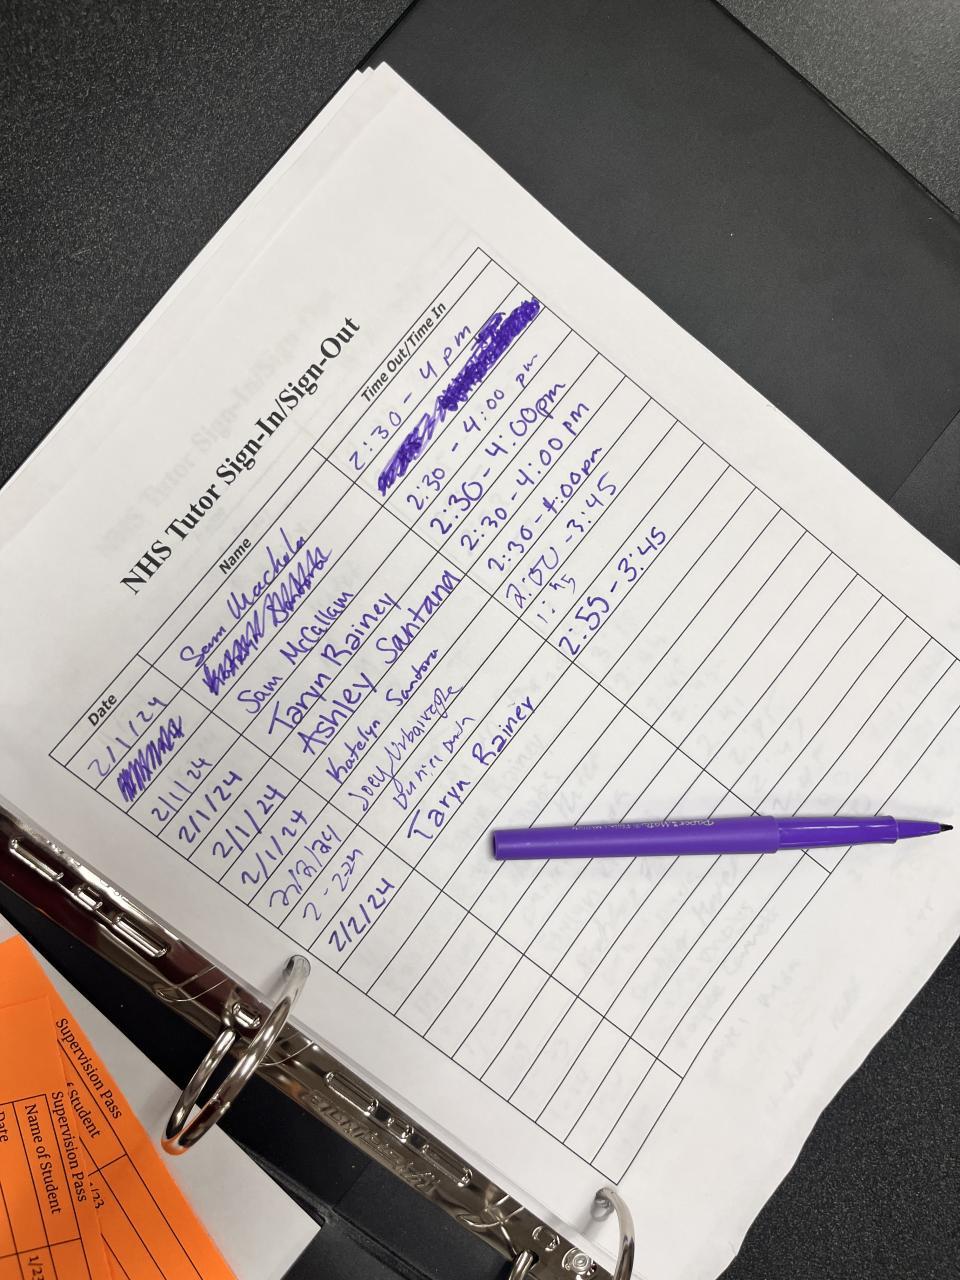 NHS Tutor Sign-In/Sign-Out
Date Name Time Out/Time In
2/1/24 Sam 2:30 - 4 pm
2/1/24 Sam McCallam 2:30 - 4:00 pm
2/1/24 Taryn Rainey 2:30 - 4:00pm
2/1/24 Ashley Santand 2:30 - 4:00 PM
2/1/24 Katelyn Sandora 2:30 - 4:00pm
Joey - 3:45
2/2/24 Taryn Rainer 2:55 - 3:45
Supervision Pass
Student
1/23
Supervision Pass
Name of Student
Date